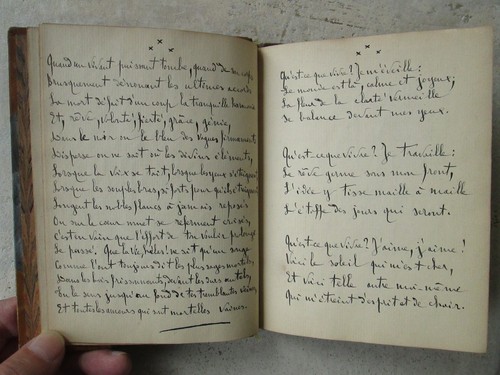 Quand un vivant puissant tombe, quand de son corps
Brusquement dénouant les ultimes accords
La mort défait d'un coup la tranquille harmonie
Et, rêve, volonté, fierté, grâce, génie,
Dans le noir ou le bleu des vagues firmaments
Disperse on ne sait où les divins éléments,
Lorsque la voix se tait, lorsque les yeux s'éteignent
Lorsque les souples bras, si forts pour qu'ils
Songent les nobles planes à jamais reposés
On sur le cœur muet se referment croisés,
C'est en vain que l'effort de ton vouloir prolonge
Le passé. Que la vie, hélas! ne soit qu'un songe
Comme l'ont toujours dit les plus sages mortels
Dans les bois frissonnants, devant les durs autels,
Tu le sens jusqu'au fond de tes tremblantes veines,
Et toutes les amours qui sont mortelles vaines.
Qu'est-ce que vivre? Je m'éveille:
Le monde est là, calme et joyeux;
La fleur de la clarté vermeille
Se balance devant mes yeux.
Qu'est-ce que vivre? Je travaille:
Le rêve germe sous mon front,
L'idée y tisse maille à maille
L'étoffe des jours qui seront.
Qu'est-ce que vivre? J'aime, j'aime!
Voici le soleil qui m'est cher,
Et voici telle autre moi-même
Qui m'étreint d'esprit et de chair.